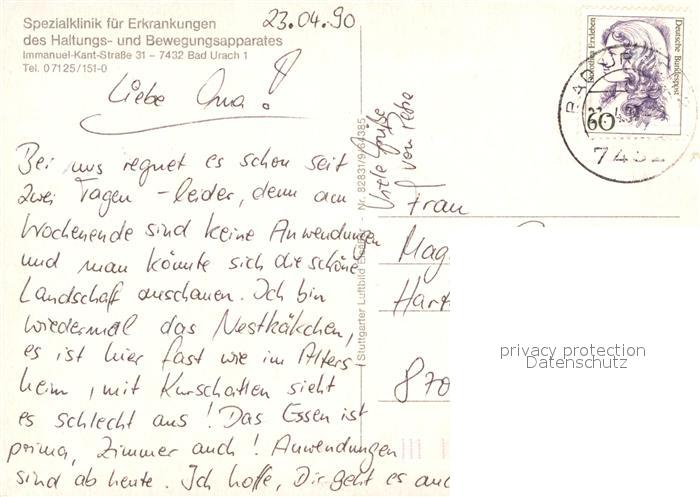 Spezialklinik für Erkrankungen
des Haltungs- und Bewegungsapparates
Immanuel-Kant-Straße 31 – 7432 Bad Urach 1
Tel. 0 71 25 / 151-0
23.04.90
Liebe Oma!
Bei uns regnet es schon seit
zwei Tagen – leider, denn am
Wochenende sind keine Anwendungen
und man könnte sich die schöne
Landschaft anschauen. Ich bin
wiedermal das Nestkäkchen,
es ist hier fast wie im Alters-
heim, mit Kurschatten sieht
es schlecht aus! Das Essen ist
prima, Zimmer auch! Anwendungen
sind ab heute. Ich hoffe, Dir geht es auc
Viele Grüße
von Petra
Stuttgarter Luftbild Elsäßer - Nr. 82831/9164385
Dorothea Erxleben
Deutsche Bundespost
60
BAD UR
7432
Frau
Mag
Hart
870
privacy protection
Datenschutz